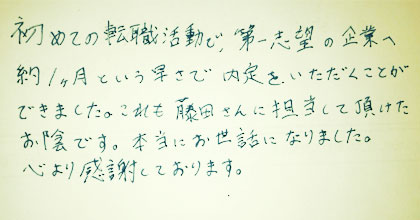 初めての転職活動で、第一志望の企業へ
約1ヶ月という早さで内定をいただくことが
できました。これも藤田さんに担当して頂けた
お陰です。本当にお世話になりました。
心より感謝しております。